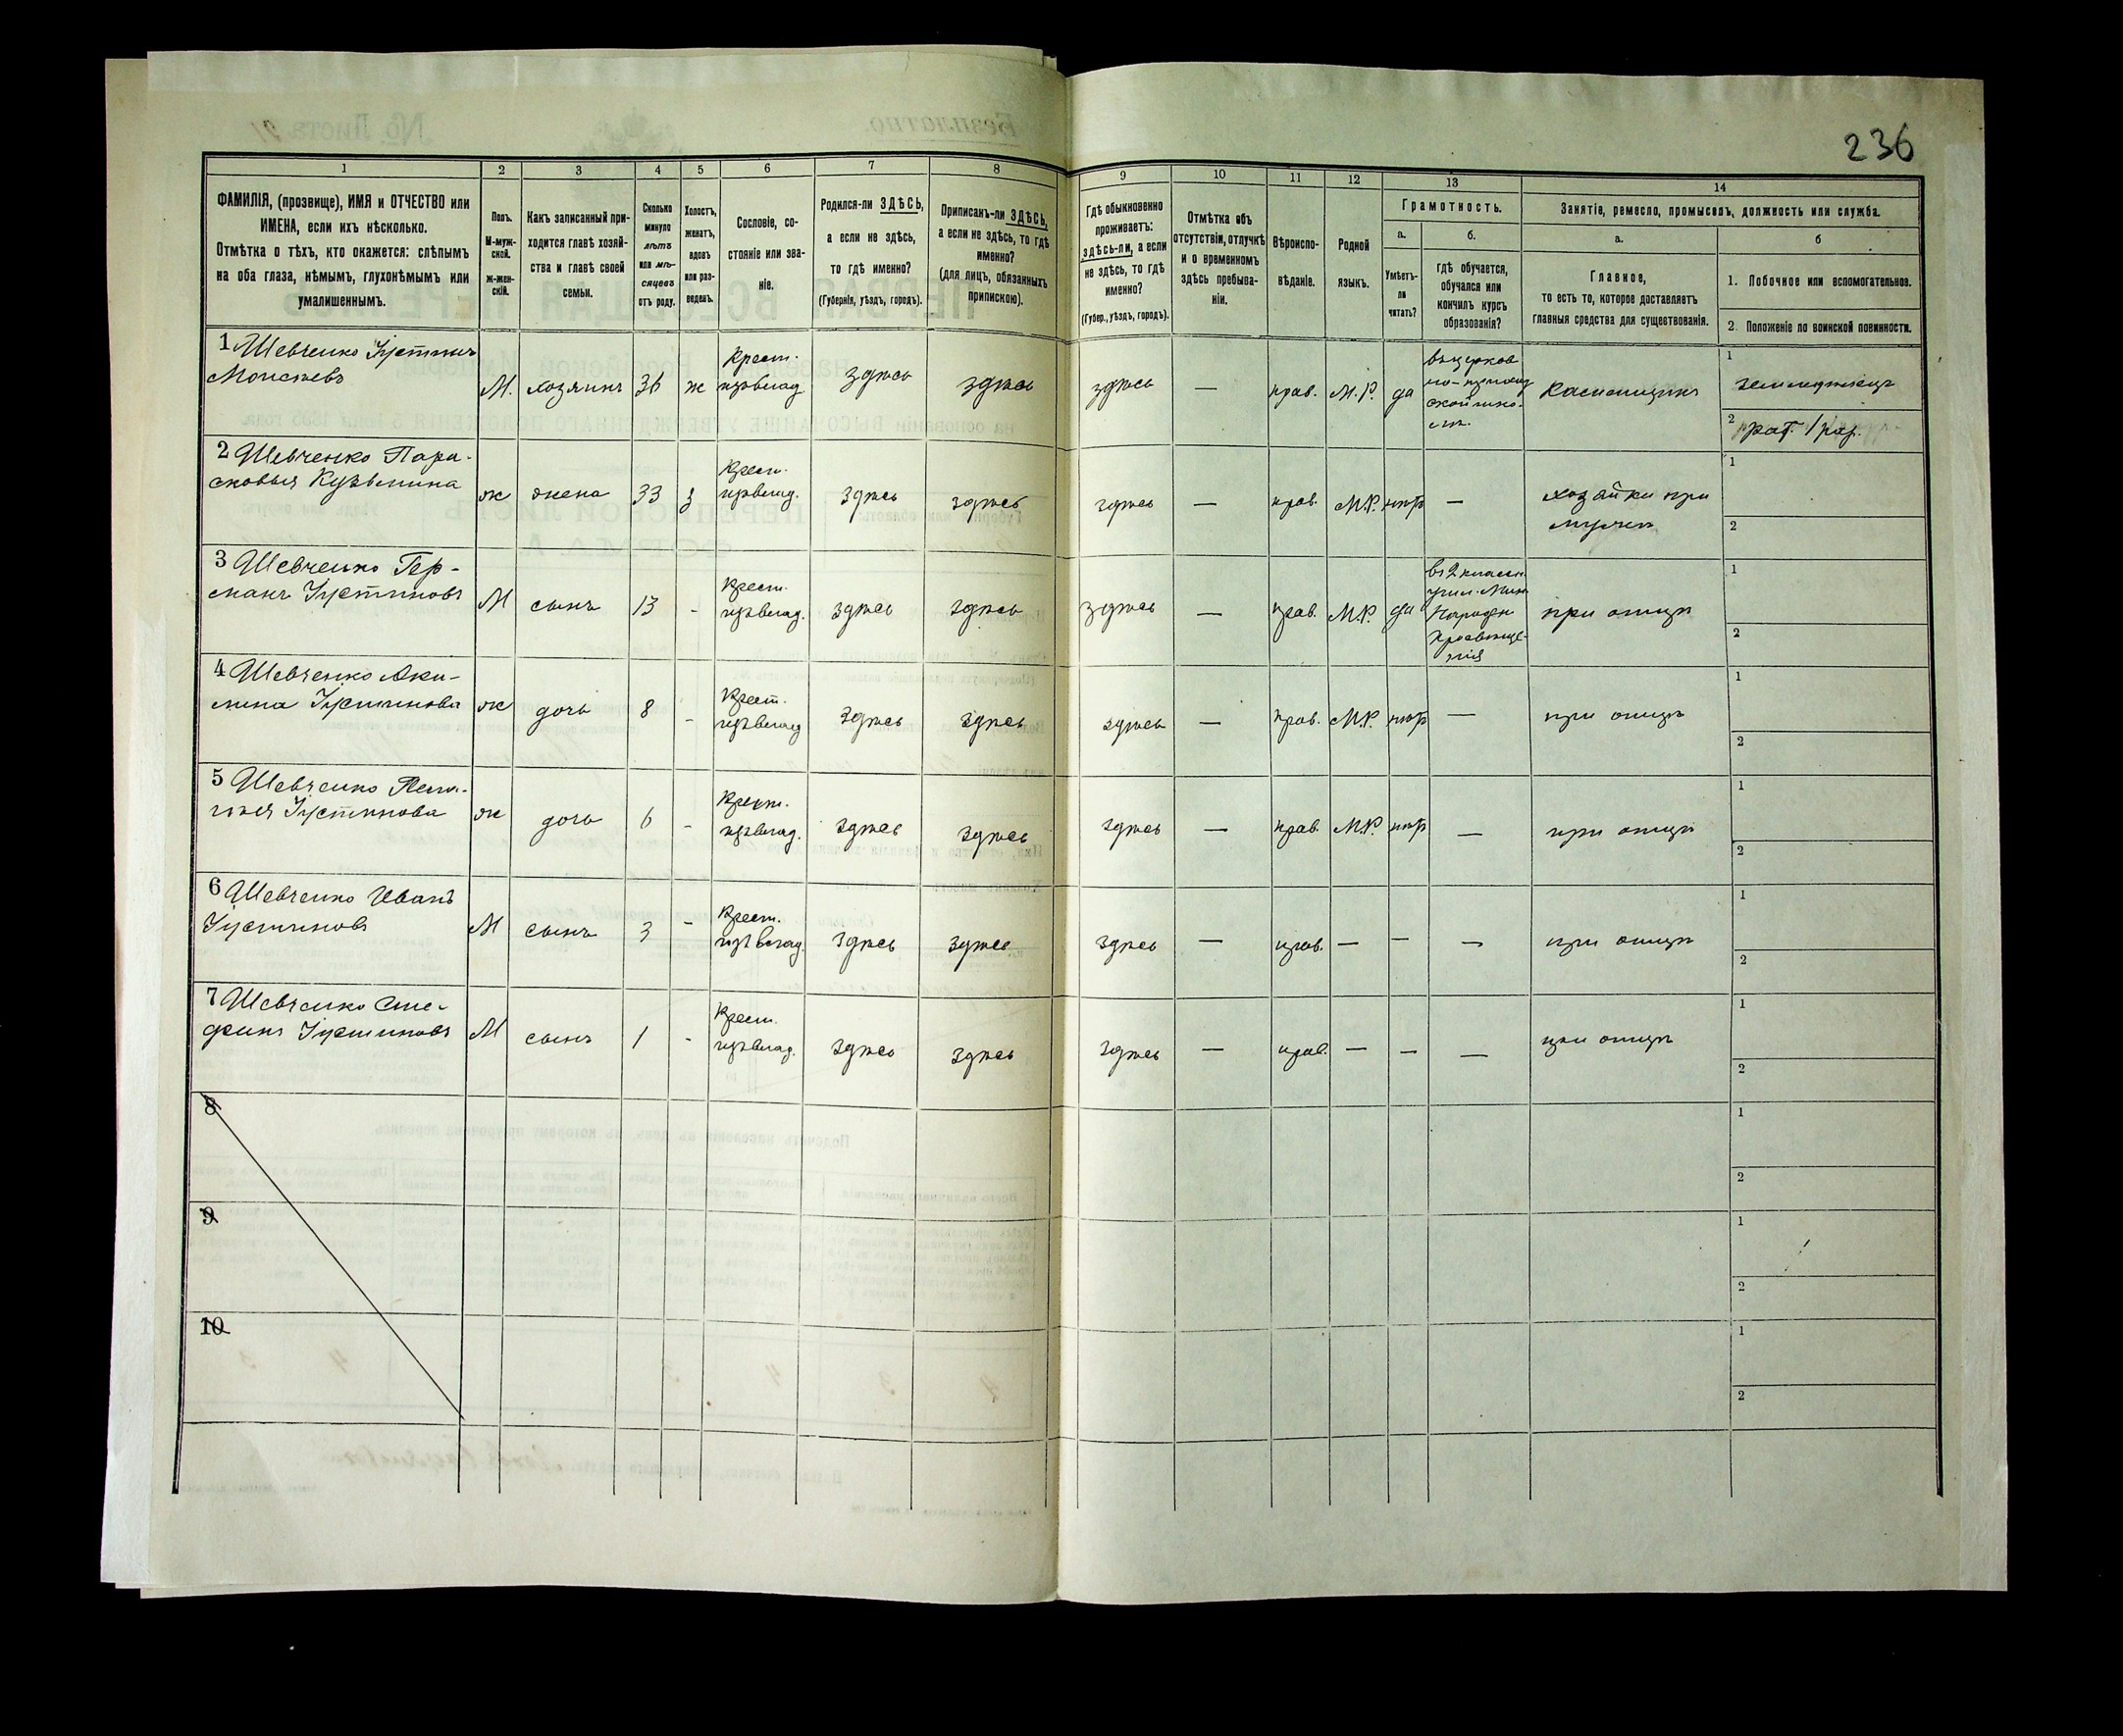 236
1 2 3 4 5 6 7 8 9 10 11 12 13 14
ФАМИЛІЯ, (прозвище), ИМЯ и ОТЧЕСТВО или
ИМЕНА, если ихъ нѣсколько.
Отмѣтка о тѣхъ, кто окажется: слѣпымъ
на оба глаза, нѣмымъ, глухонѣмымъ или
умалишеннымъ.
Полъ.
М-муж-
ской.
Ж-жен-
скій.
Какъ записанный при-
ходится главѣ хозяй-
ства и главѣ своей
семьи.
Сколько
минуло
лѣтъ
или мѣ-
сяцевъ
отъ роду.
Холостъ,
женатъ,
вдовъ
или раз-
веденъ.
Сословіе, со-
стояніе или зва-
ніе.
Родился-ли ЗДѢСЬ,
а если не здѣсь,
то гдѣ именно?
(Губернія, уѣздъ, городъ).
Приписанъ-ли ЗДѢСЬ,
а если не здѣсь, то гдѣ
именно?
(для лицъ, обязанныхъ
припискою).
Гдѣ обыкновенно
проживаетъ:
здѣсь-ли, а если
не здѣсь, то гдѣ
именно?
(Губер., уѣздъ, городъ).
Отмѣтка объ
отсутствіи, отлучкѣ
и о временномъ
здѣсь пребыва-
ніи.
Вѣроиспо-
вѣданіе.
Родной
языкъ.
Грамотность.
а.
Умѣетъ-
ли
читать?
б.
гдѣ обучается,
обучался или
кончилъ курсъ
образованія?
Занятіе, ремесло, промыселъ, должность или служба.
а.
Главное,
то есть то, которое доставляетъ
главныя средства для существованія.
б
1. Побочное или вспомогательное.
2. Положеніе по воинской повинности.
1 Шевченко Іустинъ
Моисеевъ
М. хозяинъ 36 ж
Крест.
изъ влад.
здѣсь здѣсь здѣсь — прав. М.Р. да
въ церков
но-приход
ской шко-
лѣ.
1 земледѣлецъ
2 рат. 1 раз.
2 Шевченко Пара-
сковья Кузьмина
ж жена 33 з
Крест.
изъ влад.
здѣсь здѣсь здѣсь — прав. М.Р. нѣтъ —
хозяйка при
мужѣ
1
2
3 Шевченко Гер-
манъ Іустиновъ
М сынъ 13 -
Крест.
изъ влад.
здѣсь здѣсь здѣсь — прав. М.Р. да
въ 2 классн
учил. Мин
Народн
Просвѣще-
нія
при отцѣ
1
2
4 Шевченко Аки-
лина Іустинова
ж дочь 8 -
Крест.
изъ влад
здѣсь здѣсь здѣсь — прав. М.Р. нѣтъ — при отцѣ
1
2
5 Шевченко Пела-
гія Іустинова
ж дочь 6 -
Крест.
изъ влад.
здѣсь здѣсь здѣсь — прав. М.Р. нѣтъ — при отцѣ
1
2
6 Шевченко Иванъ
Іустиновъ
М сынъ 3 -
Крест.
изъ влад.
здѣсь здѣсь здѣсь — прав. — — — при отцѣ
1
2
7 Шевченко Сте-
фанъ Іустиновъ
М сынъ 1 -
Крест.
изъ влад.
здѣсь здѣсь здѣсь — прав. — — — при отцѣ
1
2
8
1
2
9
1
2
10
1
2